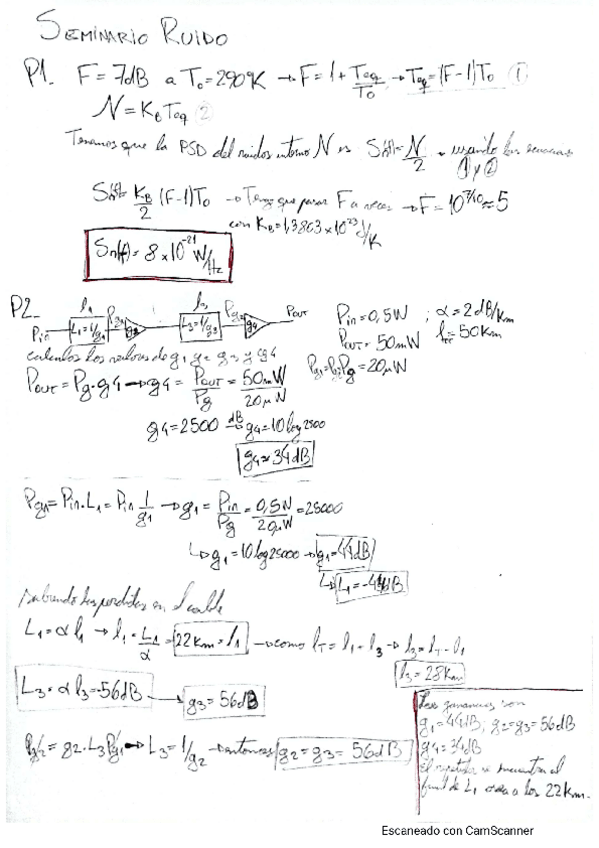 SEMINARIO RUIDO
P1. F = 7dB a T₀ = 290ºK → F = 1 + Teq/T₀ → Teq = (F-1)T₀ ①
N = K_B Teq ②
Tenemos que la PSD del ruidos interno N es Sn(f) = N/2 usando las ①y②
Sn(f) = K_B/2 (F-1)T₀ → Tengo que pasar F a veces → F = 10^(7/10) ≈ 5
con K_B = 1,3803 × 10^23 J/K
Sn(f) = 8 × 10^-21 W/Hz
P2.
l₁ l₃
Pin L₁=1/g₁ Pg₁ g₂ L₃=1/g₃ Pg₂ g₄ Pout
Pin = 0,5W ; α = 2dB/km
Pout = 50mW l_T = 50Km
Pg = 20μW
calculos los valores de g₁ g₂ g₃ y g₄
Pout = Pg·g₄ → g₄ = Pout/Pg = 50mW/20μW
g₄ = 2500 dB→ g₄ = 10log2500
g₄ ≈ 34dB
Pg₁ = Pin·L₁ = Pin 1/g₁ → g₁ = Pin/Pg = 0,5W/20μW = 25000
↳ g₁ = 10log25000 → g₁ = 44dB
↳ L₁ = -44dB
Sabiendo las perdidas en el cable
L₁ = α l₁ → l₁ = L₁/α = 22Km = l₁ → como l_T = l₁ - l₃ → l₃ = l_T - l₁
l₃ = 28Km
L₃ = α l₃ = 56dB → g₃ = 56dB
Pg₂ = g₂·L₃Pg₁ → L₃ = 1/g₂ → entonces g₂ = g₃ = 56dB
Las ganancias son
g₁ = 44dB; g₂=g₃=56dB
g₄ = 34dB
El repetidor se encuentra al
final de L₁ a los 22km.
Escaneado con CamScanner